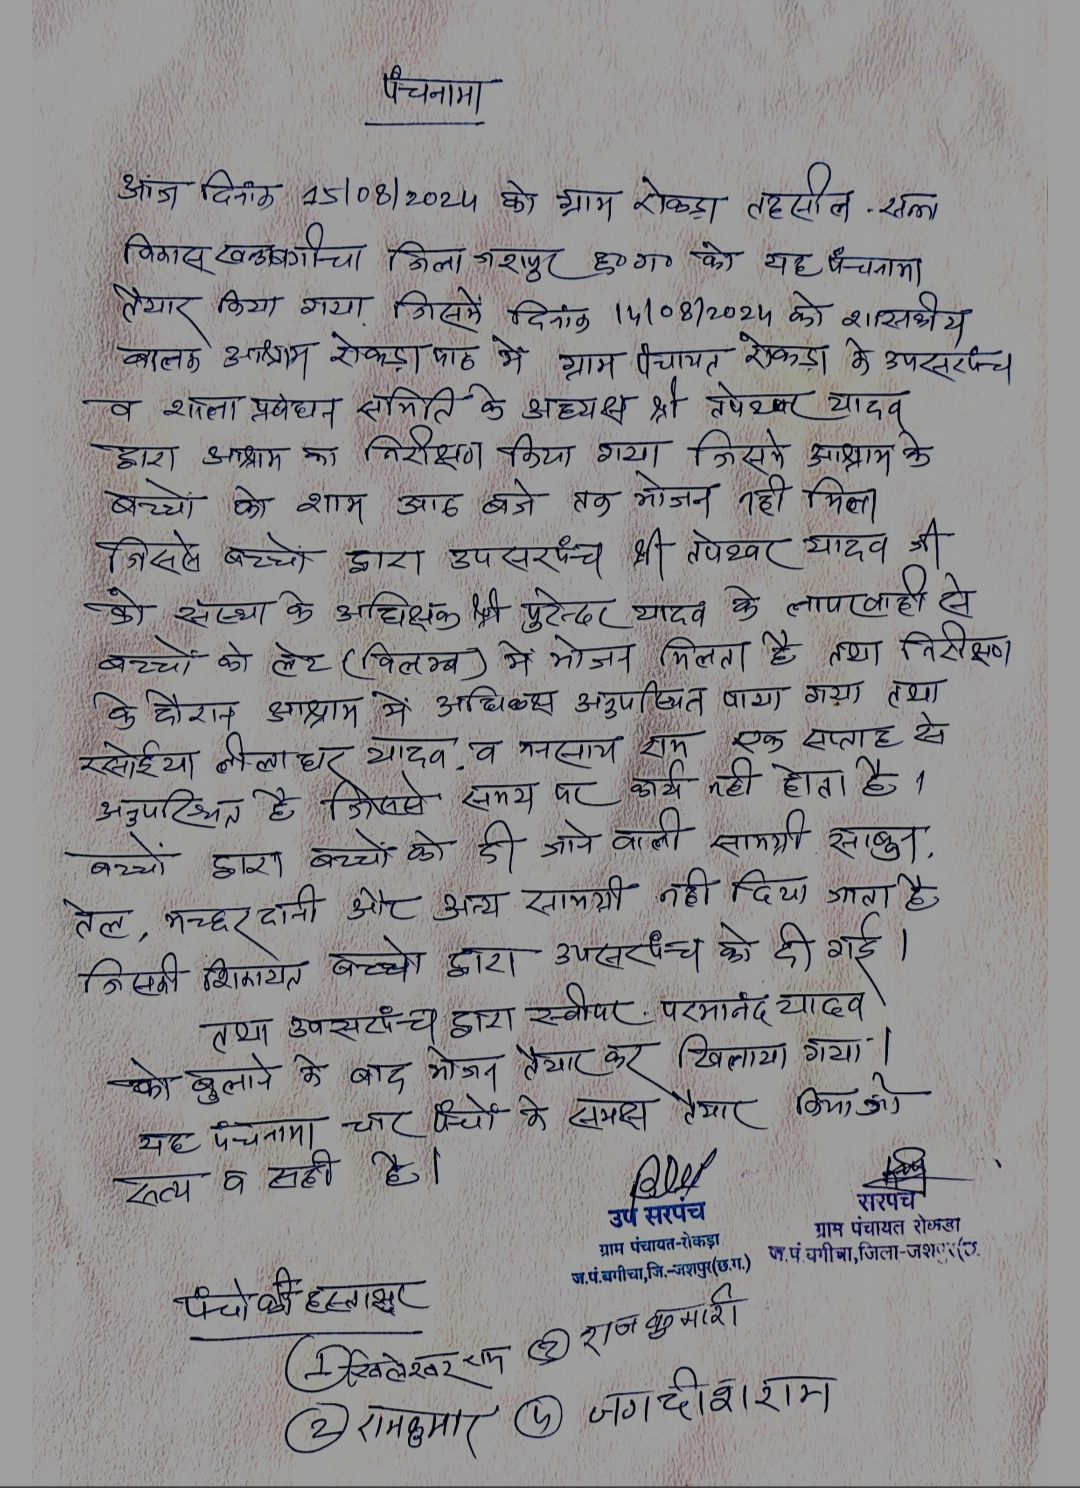 पंचनामा
आज दिनांक 15/08/2024 को ग्राम रोकड़ा तहसील - सन्ना
विकास खण्ड बगीचा जिला जशपुर छ०ग० को यह पंचनामा
तैयार किया गया, जिसमें दिनांक 14/08/2024 को शासकीय
बालक आश्रम रोकड़ा पाठ में ग्राम पंचायत रोकड़ा के उपसरपंच
व शाला प्रबंधन समिति के अध्यक्ष श्री तपेश्वर यादव
द्वारा आश्राम का निरीक्षण किया गया जिसमें आश्राम के
बच्चों को शाम आठ बजे तक भोजन नही मिला
जिससे बच्चों द्वारा उपसरपंच श्री तपेश्वर यादव जी
को संस्था के अधिक्षक श्री पुरेन्दर यादव के लापरवाही से
बच्चों को लेट (विलम्ब) में भोजन मिलता है तथा निरीक्षण
के दौरान आश्राम में अधिक्षक अनुपस्थित पाया गया तथा
रसोईया लीलाधर यादव, व मनसाय राम एक सप्ताह से
अनुपस्थित है जिससे समय पर कार्य नही होता है ।
बच्चों द्वारा बच्चों को दी जाने वाली सामग्री साबुन,
तेल, मच्छर दानी और अन्य सामग्री नही दिया जाता है
जिसकी शिकायत बच्चो द्वारा उपसरपंच को दी गई ।
तथा उपसरपंच द्वारा स्वीपर - परमानंद यादव
को बुलाने के बाद भोजन तैयार कर खिलाया गया ।
यह पंचनामा चार पंचों के समक्ष तैयार किया जो
सत्य व सही है ।
उप सरपंच
ग्राम पंचायत-रोकड़ा
ज.पं.बगीचा,जि.-जशपुर(छ.ग.)
सरपंच
ग्राम पंचायत रोकडा
ज.पं.बगीचा,जिला-जशपुर(छ.
पंचो की हस्ताक्षर
① खिलेश्वर राम ③ राजकुमारी
② रामकुमार ④ जगदीश राम